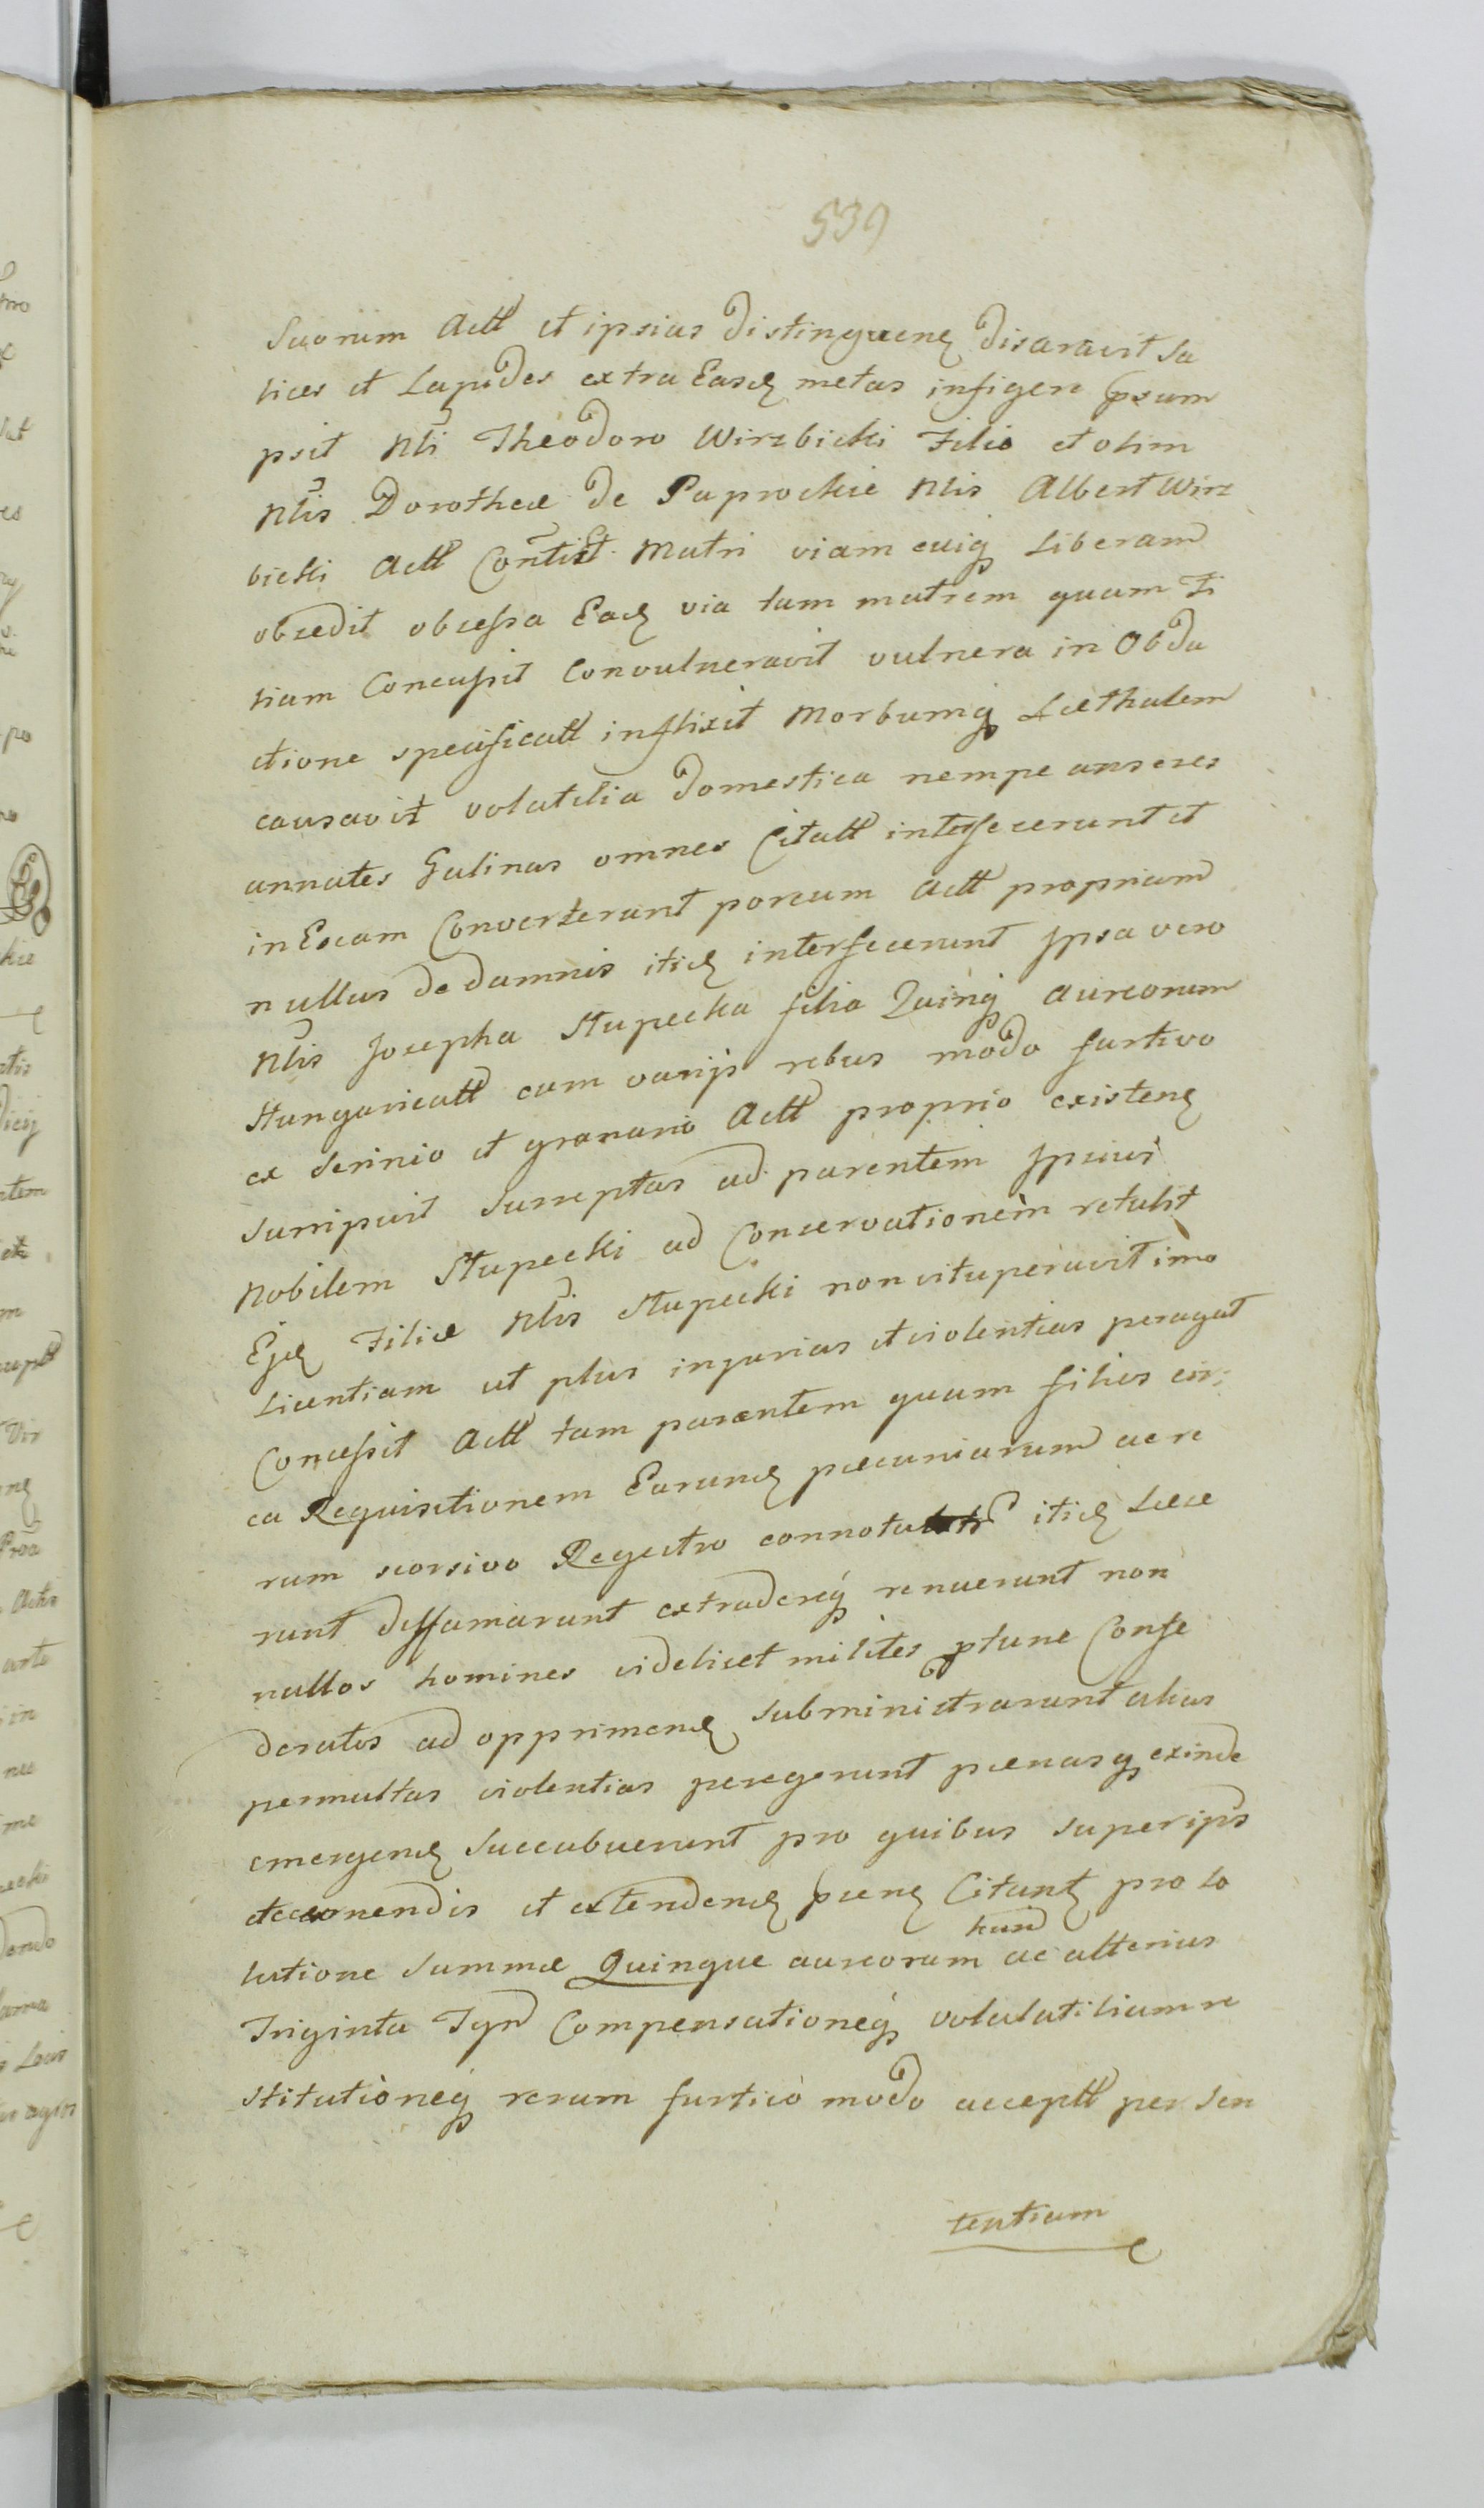 539
Suorum Actt et ipsius distinguen disaravit Sa
lices et Lapides extra Eas metas infigere psum
psit Nli Theodoro Wirzbicki Filio et olim
Nlis Dorotheæ de Paprockie Nlis Albert Wirz
bicki Actt Matri viam cuiq Liberam
obsedit obsessa Ead via tam matrem quam Fi
lium Concussit Convulneravit vulnera in Obdu
ctione specificatt inflixit Morbumq Læthalem
causavit volatilia domestica nempe anseres
annates Galinas omnes Citatt interfecerunt et
in Escam Converterunt porcum Actt proprium
nullus de damnis itid interfecerunt Ipsa vero
Nlis Josepha Stupecka filia Quinq aureorum
Hungaricatt cum varijs rebus modo furtivo
ex Scrinio et granario Actt proprio existen
surripuit surreptas ad parentem Ipsius
Nobilem Stupecki ad Conservationem retulit
Ejd Filiæ Nlis Stupecki non vituperavit imo
Licentiam ut plus injurias et violentias peragat
Concessit Actt tam parentem quam filios cir:
ca Requisitionem Earund pæcuniarum ac re
rum seorsivo Regestro connotat itid Læse
runt diffamarunt extradereq renuerunt non
nullos homines videlicet milites ptunc Confe
deratos ad opprimend subministrarunt alias
permultas violentias peregerunt pænasq exinde
emergend succubuerunt pro quibus super ips
decernendis et extendend pæn Citant pro so
lutione Summæ Quingue aureorum hund ac alterius
Triginta Tyn Compensationeq volulatilium re
stitutioneq rerum furtivo modo acceptt per Sen
tentiam